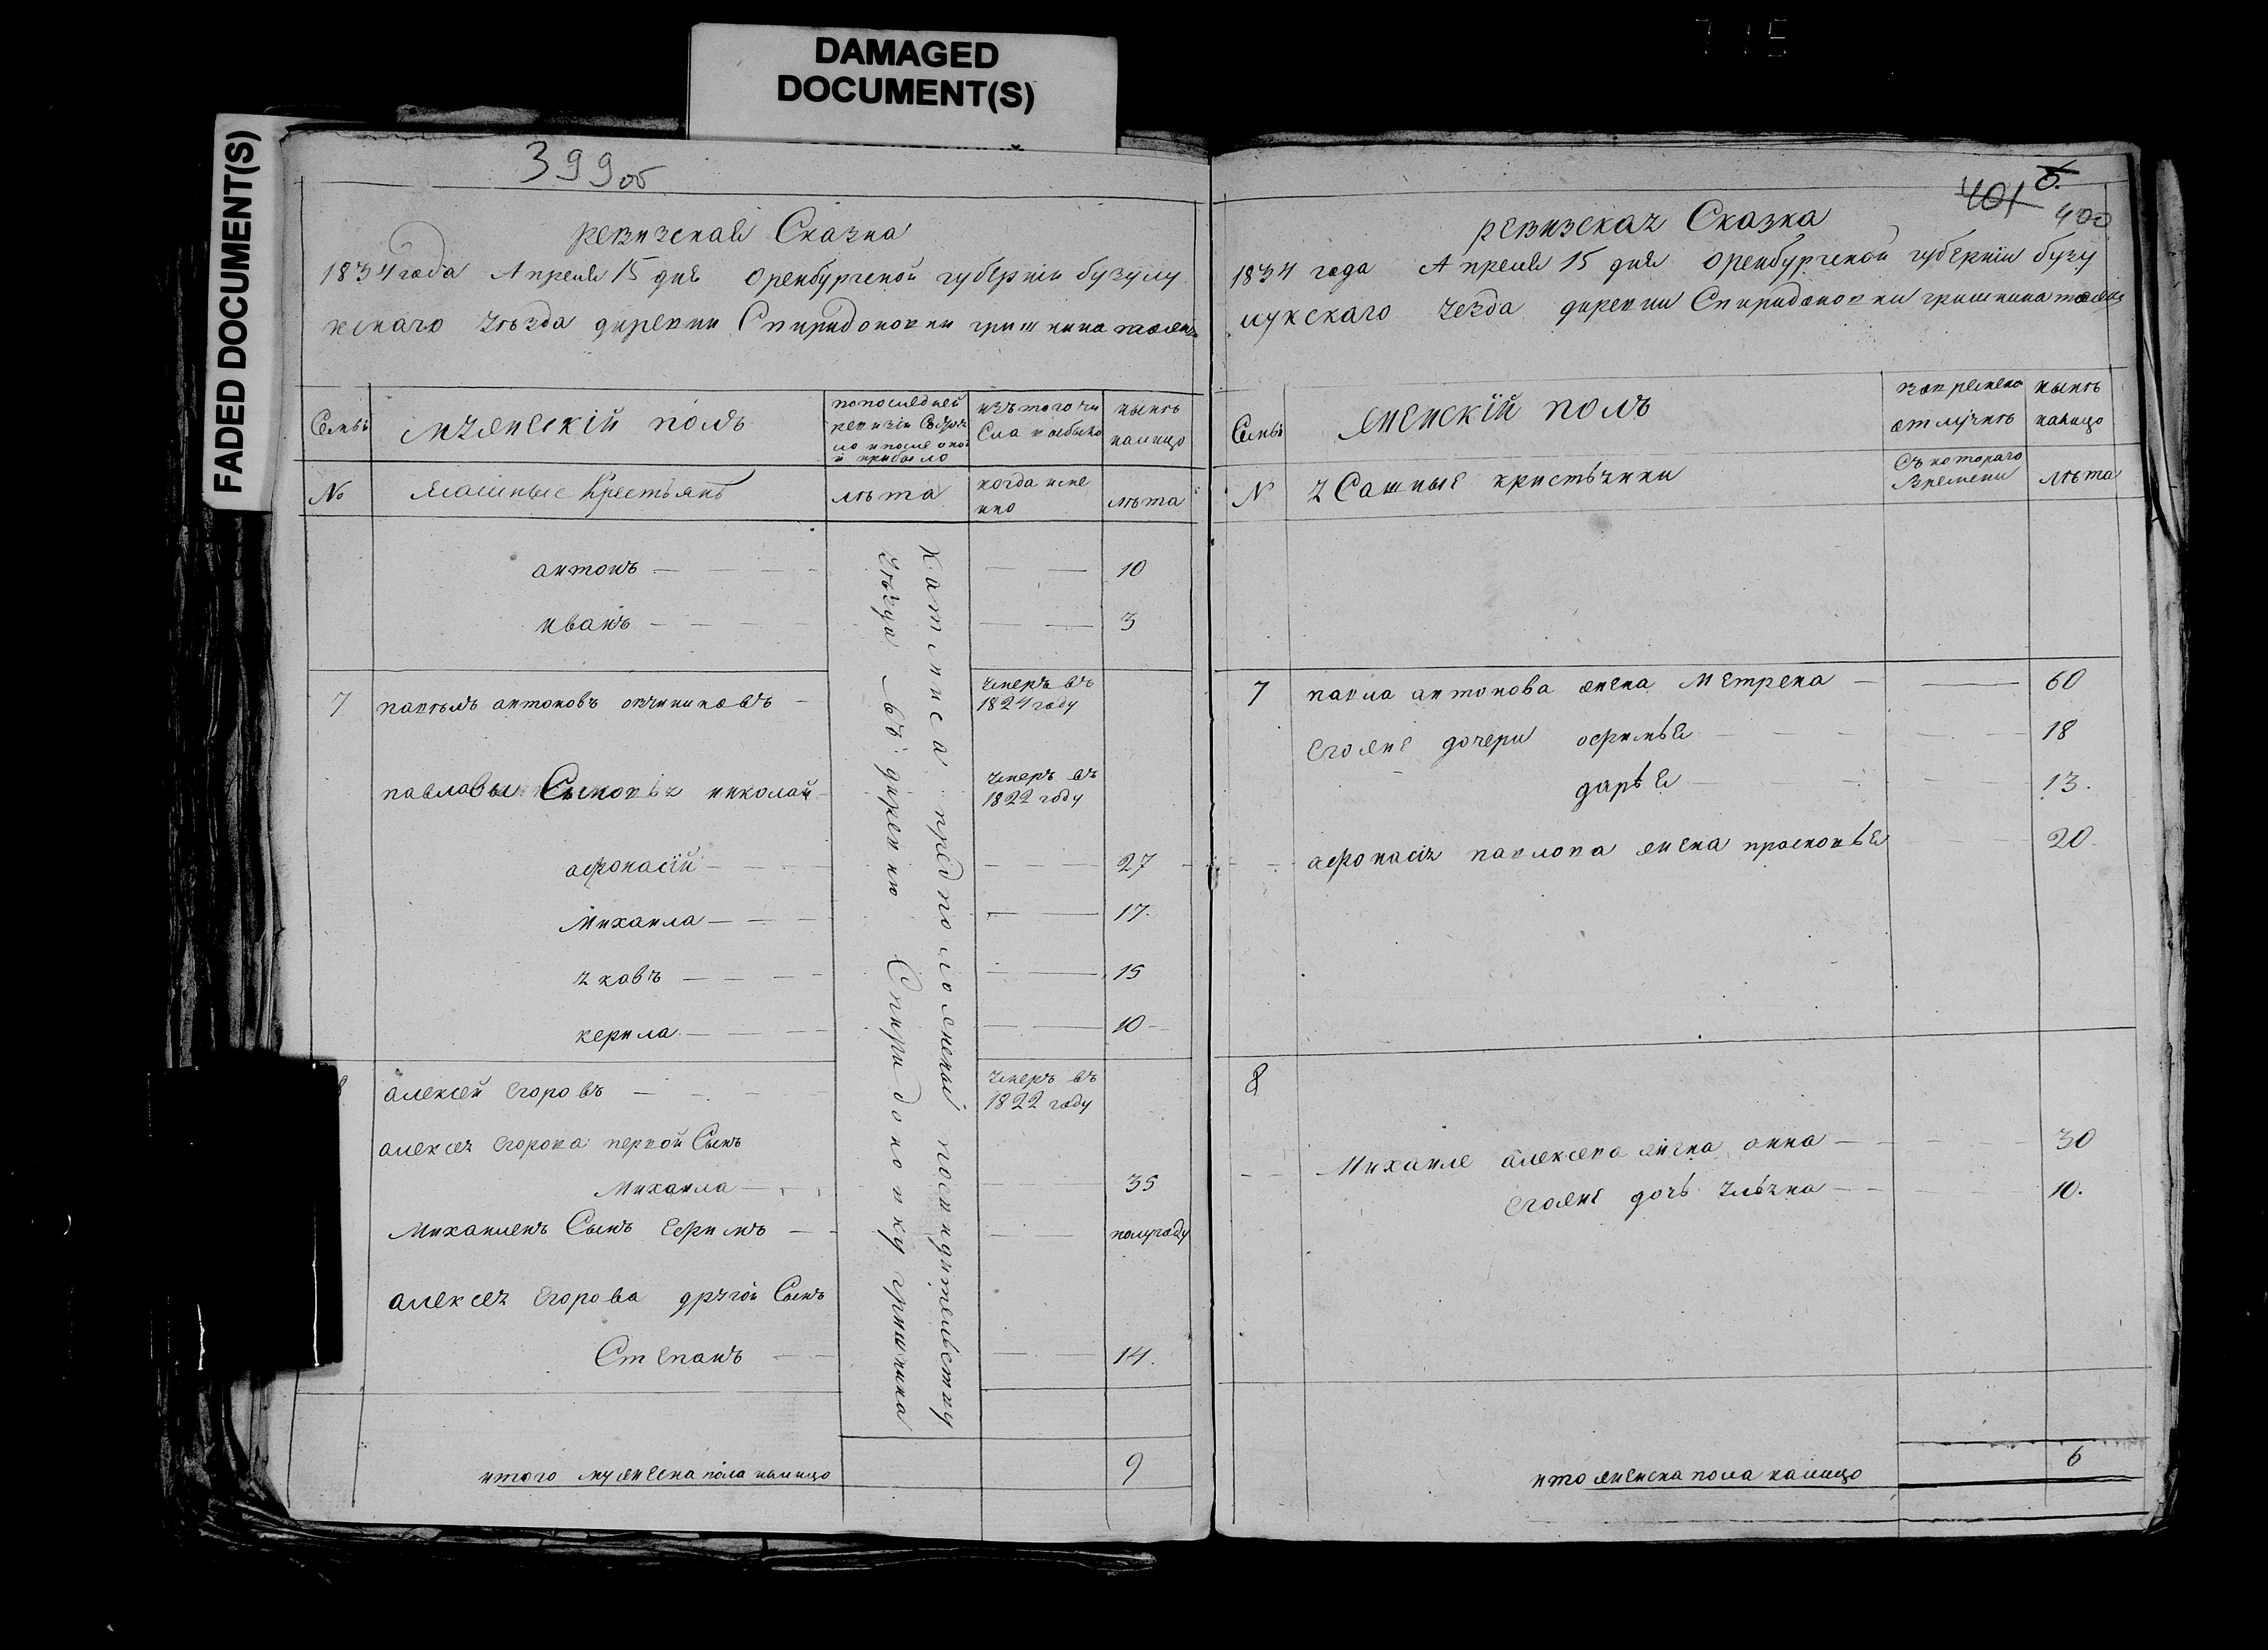 DAMAGED
DOCUMENT(S)
FADED DOCUMENT(S)
399 об
ревизская Сказка
1834 года Апреля 15 дня Оренбургской губернии бузулу
кскаго уѣзда диревни Спиридоновки гришкина тожъ
Семьи
мужескій полъ
по последней
ревизіи Состоя
ло и после оной
и прибыло
изъ того чи
Сла выбыло
нынѣ
налицо
№
Ясашные Крестьянѣ
лѣта
когда имен
но
лѣта
антонъ — — — — — 10
иванъ — — — — — 3
7 павѣлъ антоновъ овчиниковъ — умеръ въ
1824 году
павловы Сыновья николай умеръ въ
1822 году
афонасій — — — 27
Михаила — — — 17.
яковъ — — — — 15
керила — — — — 10
8 алексей Егоровъ — — умеръ въ
1822 году
алексея Егорова первой Сынъ
Михаила — — 35
Михаилевъ Сынъ Ефимъ — — полугоду
алексея Егорова другой Сынъ
Степанъ — — 14.
уѣзда въ диревню Спиридоновку гришкина
итого мужеска пола налицо 9
401 6.
400
ревизская Сказка
1834 года Апреля 15 дня Оренбургской губернии бузу
лукскаго уезда диревни Спиридоновки гришкина тожъ
Семьи
женскій полъ
во временной
отлучкѣ
нынѣ
налицо
N
ясашные кристьянки
Съ котораго
Времени
лѣта
7 павла антонова жена Метрена — — 60
Егоже дочери офимья — — 18
дарья — — 13.
афонасія павлова жена прасковья — 20
8
Михаиле алексева жена анна — — 30
Егоже дочь ульяна — — 10.
ито женска пола налицо 6